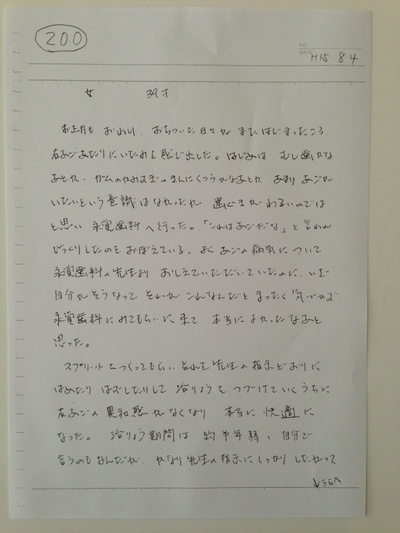 200
H15 8 4
女 39才
お正月も おわり、おちついた日々が またはじまったころ
左あごあたりに いたみを感じ出した。はじめは むし歯かな
あとは、ガムのかみすぎ
いたいという意識はなかったが 歯ぐきが わるいのでは
と思い 永覚歯科へ行った。「これはあごだな」と言われ
びっくりしたのをおぼえている。よく あごの病気について
永覚歯科の先生より おしえていただいていたのに、いざ
自分がそうなって それが これなんだと まったく気づかず
永覚歯科にみてもらいに来て 本当に よかったなあと
思った。
スプリントをつくってもらい それを先生の指示どおりに
はめたり はずしたりして 治りょうを つづけていくうちに
左あごの異和感がなくなり 本当に 快適に
なった。治りょう期間は 約半年弱、自分で
言うのもなんだが、かなり先生の指示にしっかり したがって
うらへ